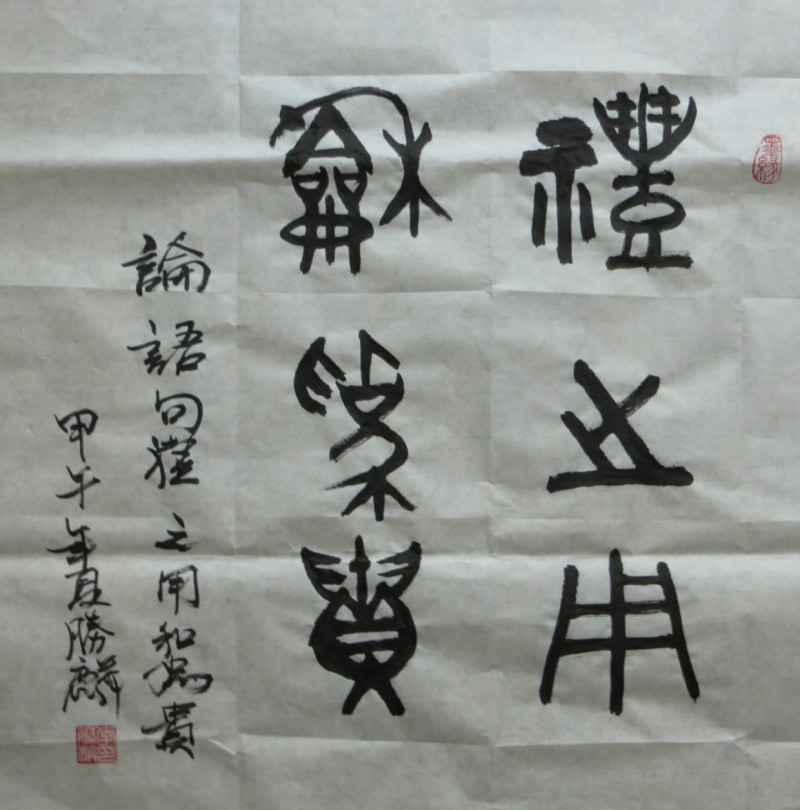 墨緣
禮之用
龢為貴
論語句禮之用和為貴
甲午年夏勝麟